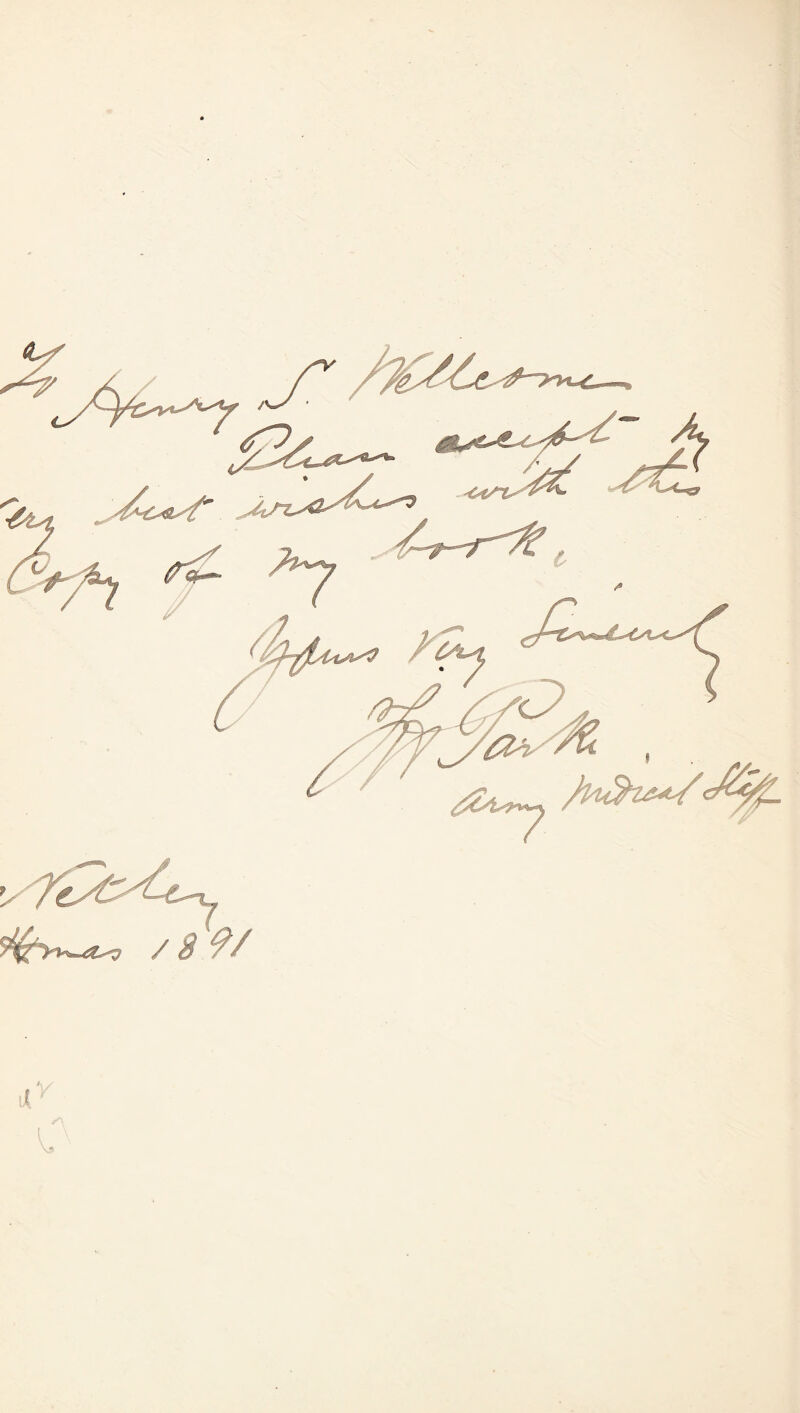 To
Henry S. Wellcome
Please accept my
very best wishes with this
Copy of my book,
Yours Very Sincerely
Parke.
Army Medical Staff
Netley
Xmas 1891